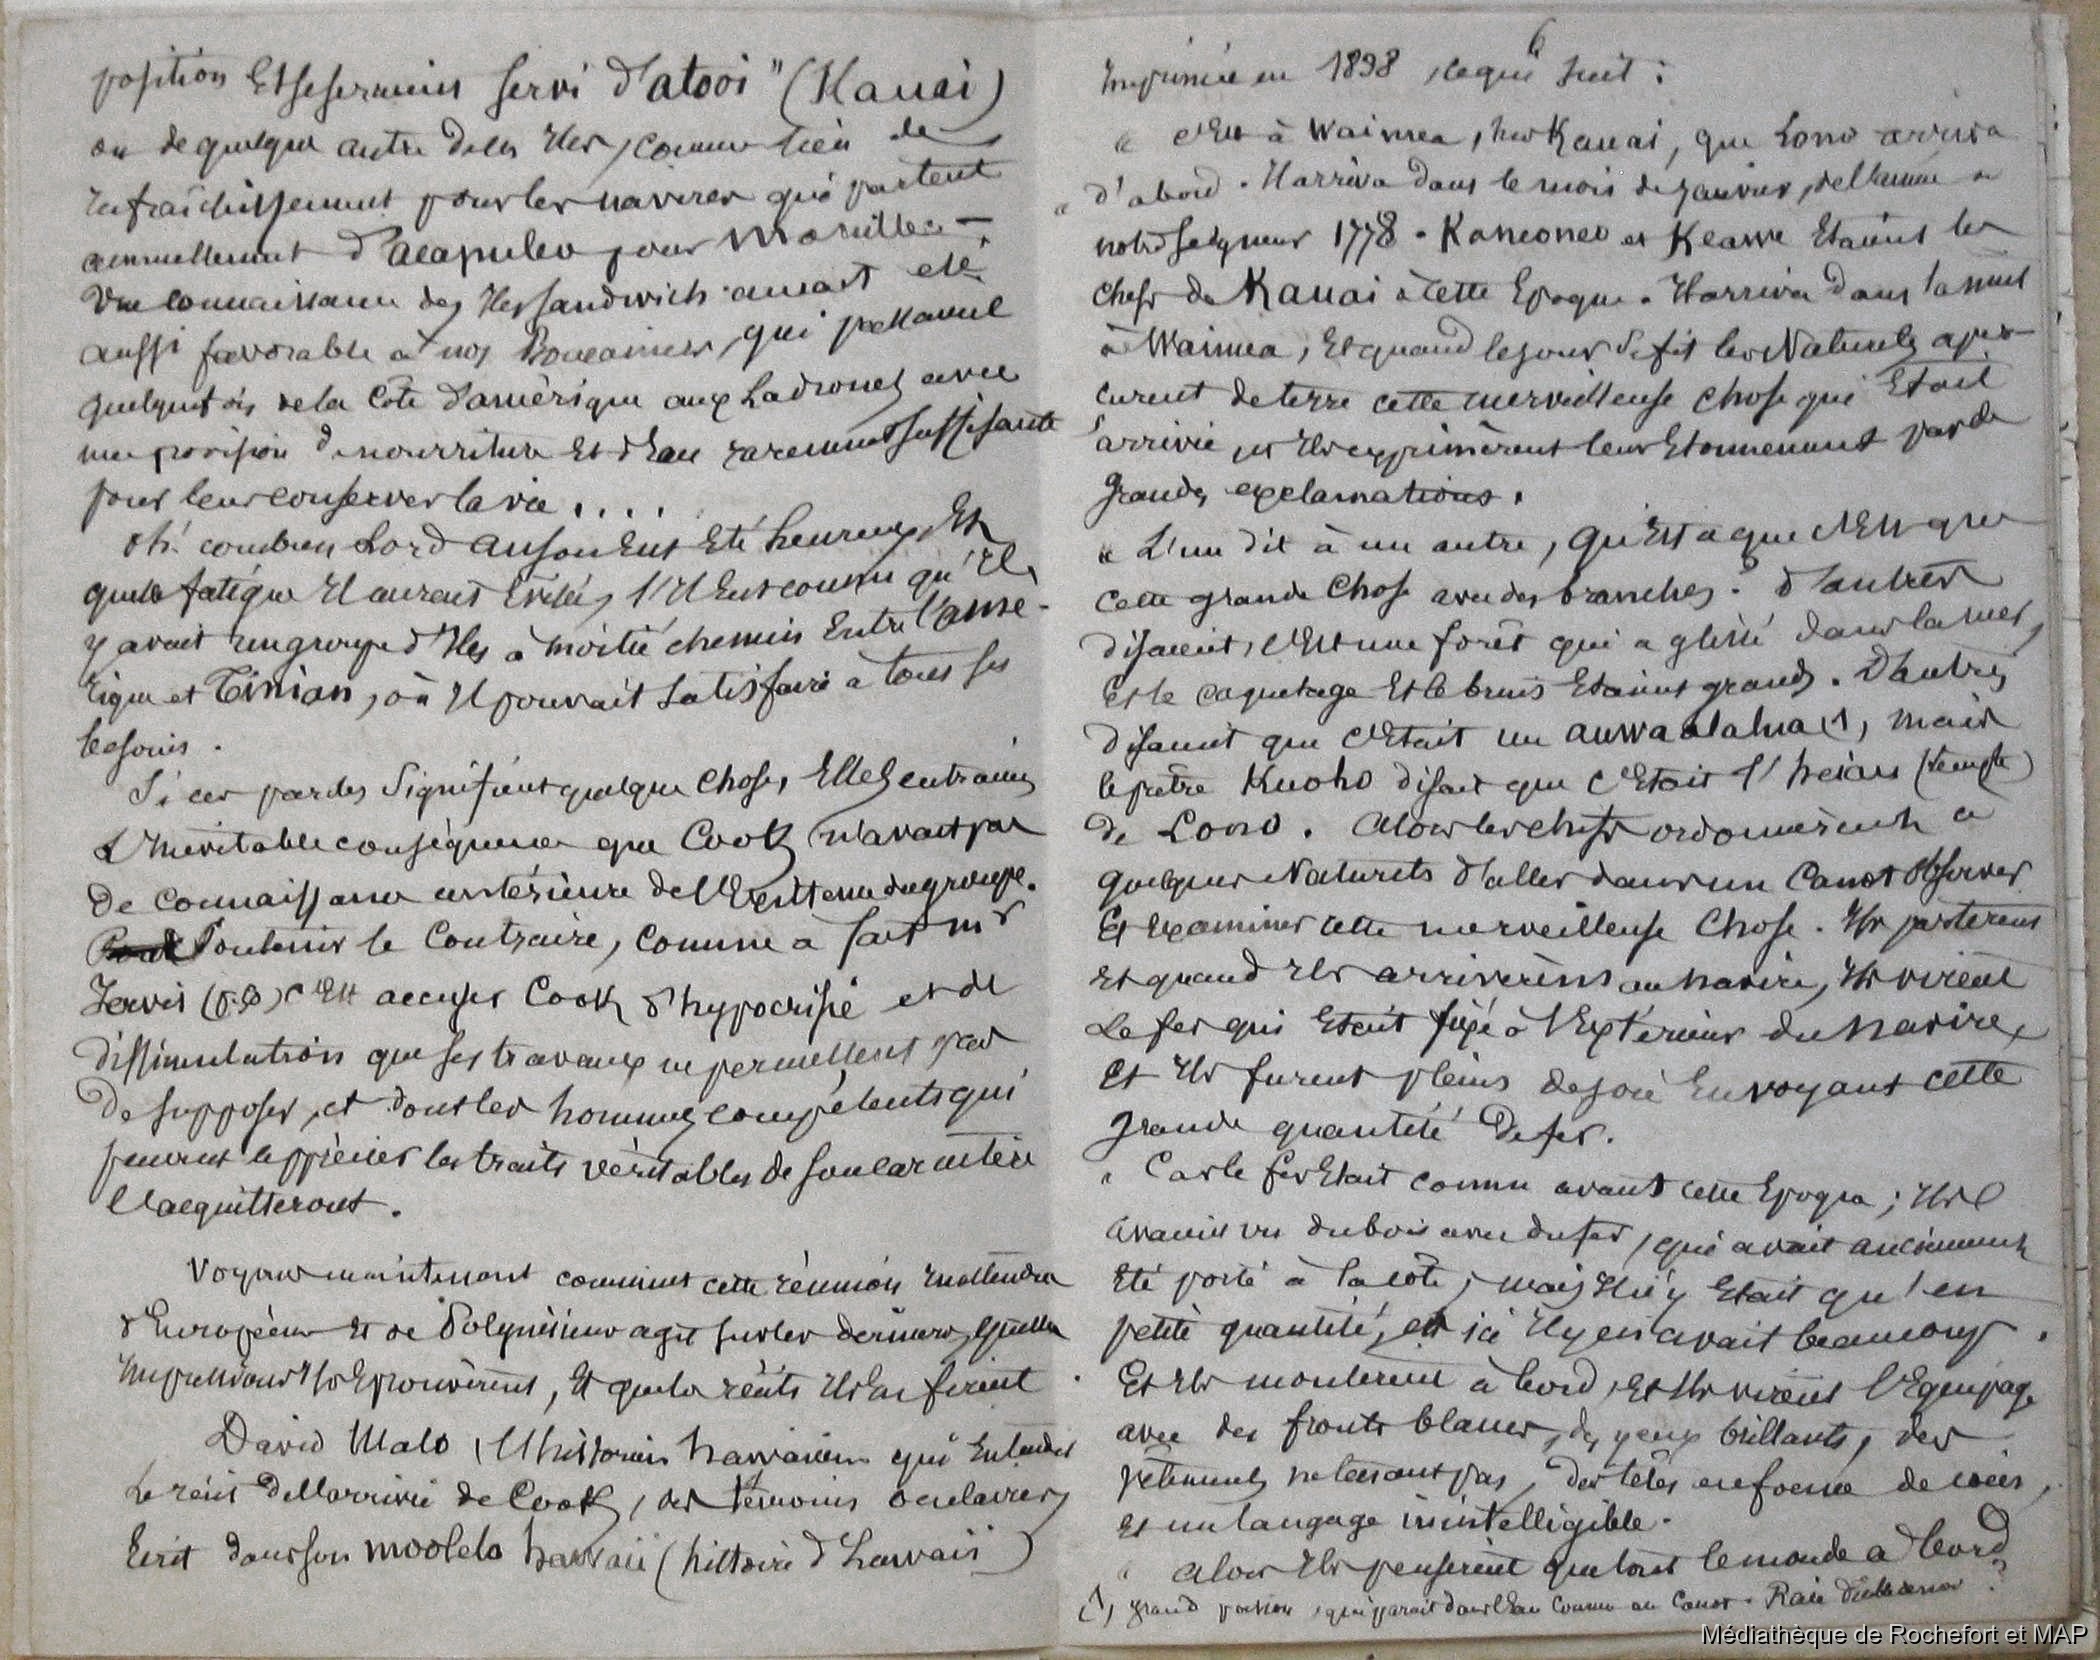 position Et se seraient servi d'atooi" (Kauai)
ou de quelque autre de ces Iles, comme lieu de
rafraîchissement pour les navires qui partent
annuellement d'acapulco pour Manille —
Une connaissance des Iles sandwich aurait été
aussi favorable à nos Boucaniers, qui passaient
quelquefois de la Côte d'amérique aux Ladrones avec
une provision de nourriture Et d'Eau rarement suffisante
pour leur conserver la vie . . . .
Oh! combien Lord anson Eut Eté heureux, Et
quelle fatigue Il aurait Evitée, s'Il Eut connu qu'Il
y avait un groupe d'Iles à moitié chemin Entre l'amé-
rique et Tinian, où Il pouvait satisfaire à tous ses
besoins .
Si ces paroles signifient quelque chose, Elles entrainent
L'inévitable conséquence que Cook n'avait pas
de connaissance antérieure de l'Existence du groupe.
Soutenir le Contraire, comme a fait mr
Jarvis C'Est accuser Cook d'hypocrisie et de
dissimulation que ses travaux ne permettent pas
de supposer, et dont les hommes compétents qui
peuvent apprécier les traits véritables de son caractère
l'acquitteront .
Voyons maintenant comment cette réunion inattendue
d'Européens Et de Polynésiens agit sur les derniers, quelles
Impressions Ils Eprouvèrent, Et quels récits Ils En firent .
David Malo, l'historien hawaiien qui Entendit
Le récit de l'arrivée de Cook, des témoins oculaires,
Ecrit dans son moolelo hawaii (histoire d'hawaii)
6
Imprimée en 1838, ce qui suit :
" C'Est à Waimea, Iles Kauai, que Lono arriva
" d'abord . Il arriva dans le mois de Janvier, de l'année de
notre Seigneur 1778 . Kaneoneo et Keawe Etaient les
chefs de Kauai à cette Epoque . Il arriva dans la nuit
à Waimea, Et quand le jour se fit les Naturels aper-
curent de terre cette merveilleuse chose qui Etait
arrivée, et Ils exprimèrent leur Etonnement par de
Grandes exclamations .
" L'un dit à un autre, qu'Est ce que C'Est que
cette grande chose avec des branches . D'autres
disaient, C'Est une forêt qui a glissé dans la mer,
Et le caquetage Et le bruit Etaient grands . D'autres
disaient que C'Etait un auwaalalua (1), mais
le prêtre Kuoho disait que C'Etait l'heiau (temple)
de Lono . Alors les chefs ordonnèrent à
quelques Naturels d'aller dans un Canot observer
Et Examiner cette merveilleuse chose . Ils partirent
Et quand Ils arrivèrent au navire, Ils virent
Le fer qui Etait fixé à l'Extérieur du navire,
Et Ils furent pleins de joie En voyant cette
grande quantité de fer .
" Car le fer Etait connu avant cette Epoque ; Ils
avaient vu du bois avec du fer, qui avait anciennement
Eté porté à la côte, mais Il n'y Etait qu'en
petite quantité, et ici Il y en avait beaucoup .
Et Ils montèrent à bord, Et Ils virent l'Equipage
avec des fronts blancs, des yeux brillants, des
vêtements des têtes en forme de
Et un langage inintelligible .
" Alors Ils pensèrent que tout le monde à bord
(1) grand poisson, qui parait dans l'Eau comme un Canot . Raie ?
Médiathèque de Rochefort et MAP